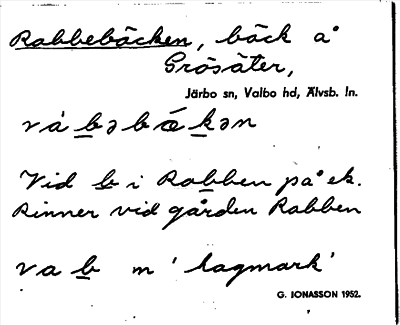 Rabbebäcken, bäck å
Grösäter,
Järbo sn, Valbo hd, Älvsb. ln.
vàbəbækən
Vid b i Rabben på ek.
Rinner vid gården Rabben
vab m 'hagmark'
G. IONASSON 1952.